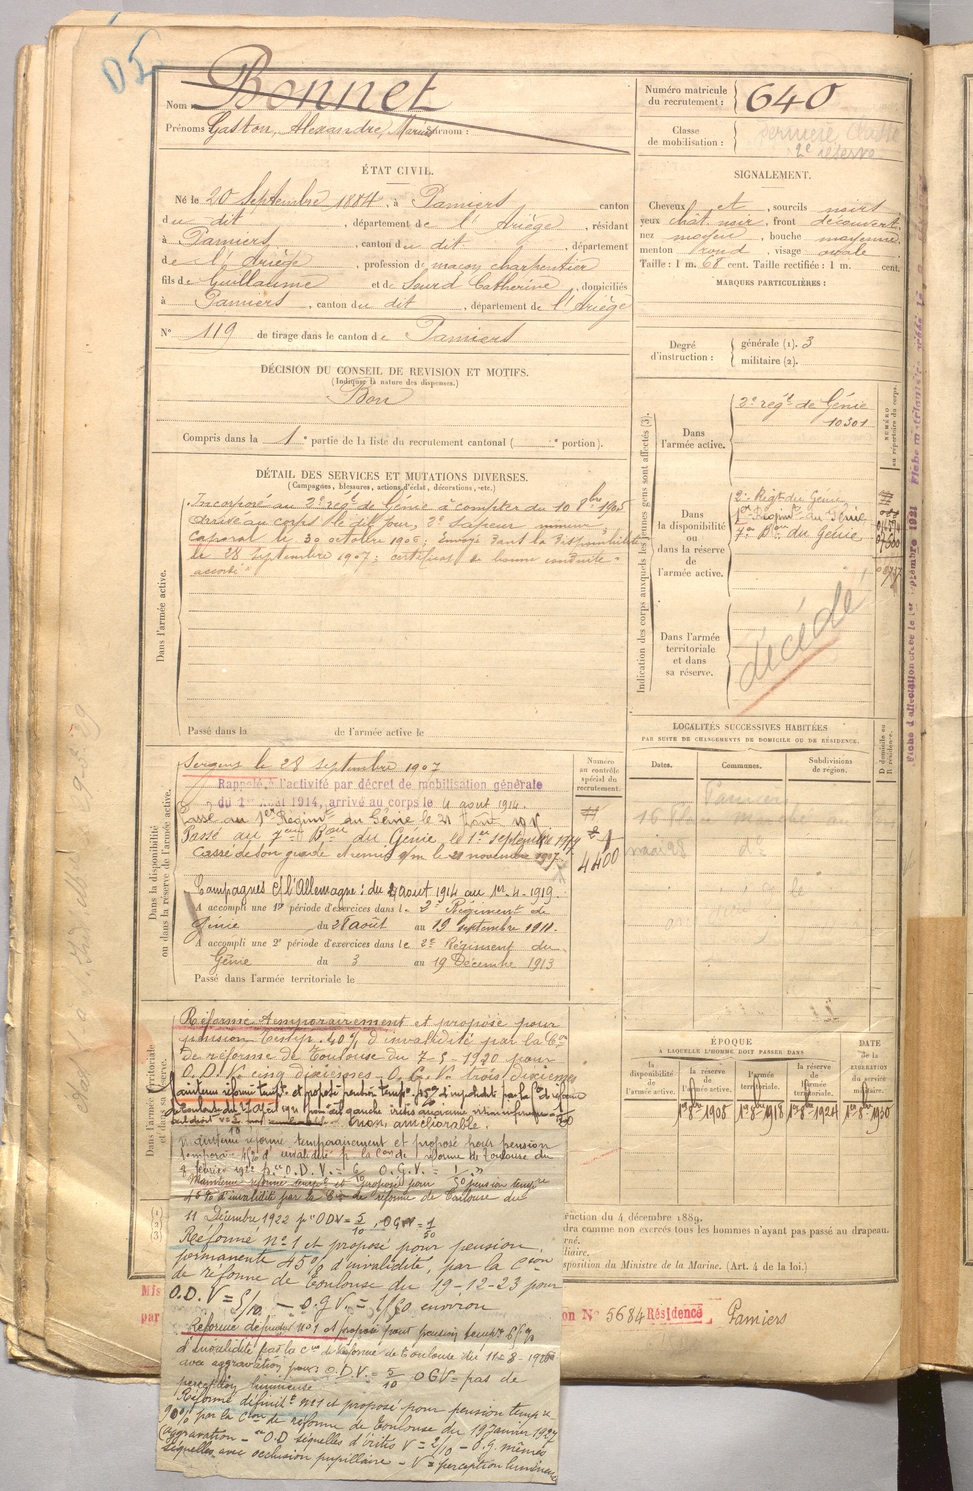 05
Nom : Bonnet
Prénoms Gaston, Alexandre, Marius Surnom :
Numéro matricule du recrutement : 640
Classe de mobilisation : première Classe
2e réserve
ÉTAT CIVIL.
Né le 20 Septembre 1884, à Pamiers canton
du dit, département de l'Ariège, résidant
à Pamiers, canton du dit, département
de l'Ariège, profession de maçon charpentier
fils de Guillaume et de Sourd Catherine, domiciliés
à Pamiers, canton du dit, département de l'Ariège
N° 119 de tirage dans le canton de Pamiers
SIGNALEMENT.
Cheveux et, sourcils noirs
yeux chât. noir, front découvert,
nez moyen, bouche moyenne,
menton rond, visage ovale
Taille : 1 m. 68 cent. Taille rectifiée : 1 m. cent.
MARQUES PARTICULIÈRES :
Degré d'instruction : générale (1). 3
militaire (2).
DÉCISION DU CONSEIL DE REVISION ET MOTIFS.
(Indiquer la nature des dispenses.)
Bon
Compris dans la 1e partie de la liste du recrutement cantonal ( e portion).
DÉTAIL DES SERVICES ET MUTATIONS DIVERSES.
(Campagnes, blessures, actions d'éclat, décorations, etc.)
Dans l'armée active.
Incorporé au 2e régt de Génie à compter du 10 8bre 1905
Arrivé au corps le dit jour, 2e sapeur mineur,
Caporal le 30 octobre 1906; Envoyé dans la disponibilité
le 28 Septembre 1907; certificat de bonne conduite
"accordé"
Passé dans la de l'armée active le
Indication des corps auxquels les jeunes gens sont affectés (3).
Dans l'armée active.
2e régt de Génie
10301
NUMÉRO au répertoire du corps.
Dans la disponibilité ou dans la réserve de l'armée active.
2e Régt du Génie
1er Régimt du Génie
7e Bon du Génie
Dans l'armée territoriale et dans sa réserve.
décédé
Fiche d'affectation créée le 1er septembre 1921
LOCALITÉS SUCCESSIVES HABITÉES
PAR SUITE DE CHANGEMENTS DE DOMICILE OU DE RÉSIDENCE.
Dates. Communes. Subdivisions de région. D domicile ou R résidence.
Pamiers
Dans la disponibilité ou dans la réserve de l'armée active.
Numéro au contrôle spécial du recrutement.
4400
Sergent le 28 septembre 1907
Rappelé à l'activité par décret de mobilisation générale
du 1er Août 1914, arrivé au corps le 4 août 1914.
Passé au 1er Régimt au Génie le 21
Passé au 7ème Bon du Génie le 1er septembre 1917
Cassé de son grade & remis s/m le 21 novembre 1917
Campagnes c/l'Allemagne : du 4 août 1914 au 1er-4-1919.
A accompli une 1re période d'exercices dans le 2e Régiment de
Génie du 28 août au 19 septembre 1911.
A accompli une 2e période d'exercices dans le 2e Régiment du
Génie du 3 au 19 Décembre 1913
Passé dans l'armée territoriale le
Dans l'armée territoriale et dans sa réserve.
Réformé temporairement et proposé pour
pension temp. 40% d'invalidité par la Con
de réforme de Toulouse du 7-5-1920 pour
O.D.V. cinq dixièmes - O.G.V. trois dixièmes
Maintenu réformé tempt et proposé pension tempre 45% d'invalidité par la Con de réforme
de Toulouse du
non améliorable.
maintenu réformé temporairement et proposé pour pension
temporaire 45% d'invalidité p la Con de réforme de Toulouse du
février 1922
Maintenu réformé tempt et proposé pour pension tempre
45% d'invalidité par la Con de réforme de Toulouse du
11 Décembre 1922 pr ODV = 5/10, OGV = 1/50
Réformé n° 1 et proposé pour pension
permanente 45% d'invalidité, par la Cion
de réforme de Toulouse du 19-12-23 pour
O.D.V = 5/10 - O.G.V. = 1/50 environ
Réformé définitif n° 1 et proposé pour pension tempre 65%
d'invalidité par la Con de réforme de Toulouse du
avec aggravation pour O.D.V. = 5/10 OGV = pas de
perception lumineuse
Réformé définitf n° 1 et proposé pour pension tempre
90% par la Cion de réforme de Toulouse du 19 Janvier 1927
(aggravation - O.D séquelles d'iritis V = 2/10 - O.G. mêmes
séquelles avec occlusion pupillaire - V = perception lumineuse
ÉPOQUE
A LAQUELLE L'HOMME DOIT PASSER DANS
la disponibilité de l'armée active. la réserve de l'armée active. l'armée territoriale. la réserve de l'armée territoriale.
DATE de la LIBÉRATION du service militaire.
1er 8bre 1908 1er 8bre 1918 1er 8bre 1924 1er 8bre 1930
(1)
(2)
(3)
ruction du 4 décembre 1889.
dra comme non exercés tous les hommes n'ayant pas passé au drapeau.
rné.
liaire.
sposition du Ministre de la Marine. (Art. 4 de la loi.)
Mis
par
on N° 5684 Résidence Pamiers